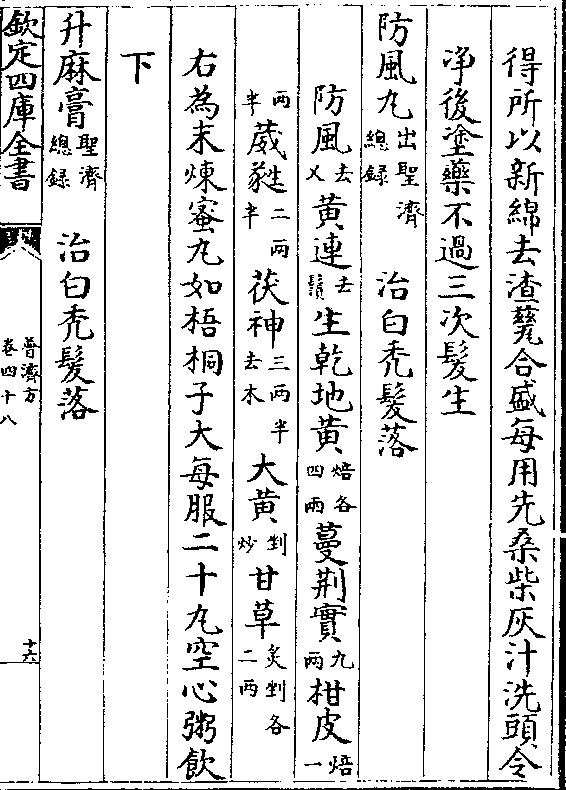 得所以新綿去渣甆合盛每用先桑柴灰汁洗頭令
净後塗藥不過三次髮生
防風丸出聖濟總録 治白禿髮落
防風去叉黄連去鬚生乾地黄焙各四兩蔓荆實九兩柑皮焙一
兩半葳蕤二兩半茯神三兩半去木大黄剉炒甘草炙剉各二兩
右為末煉蜜丸如梧桐子大每服二十丸空心粥飲
下
升麻膏聖濟總録 治白禿髮落
欽定四庫全書
普濟方
卷四十八
十六